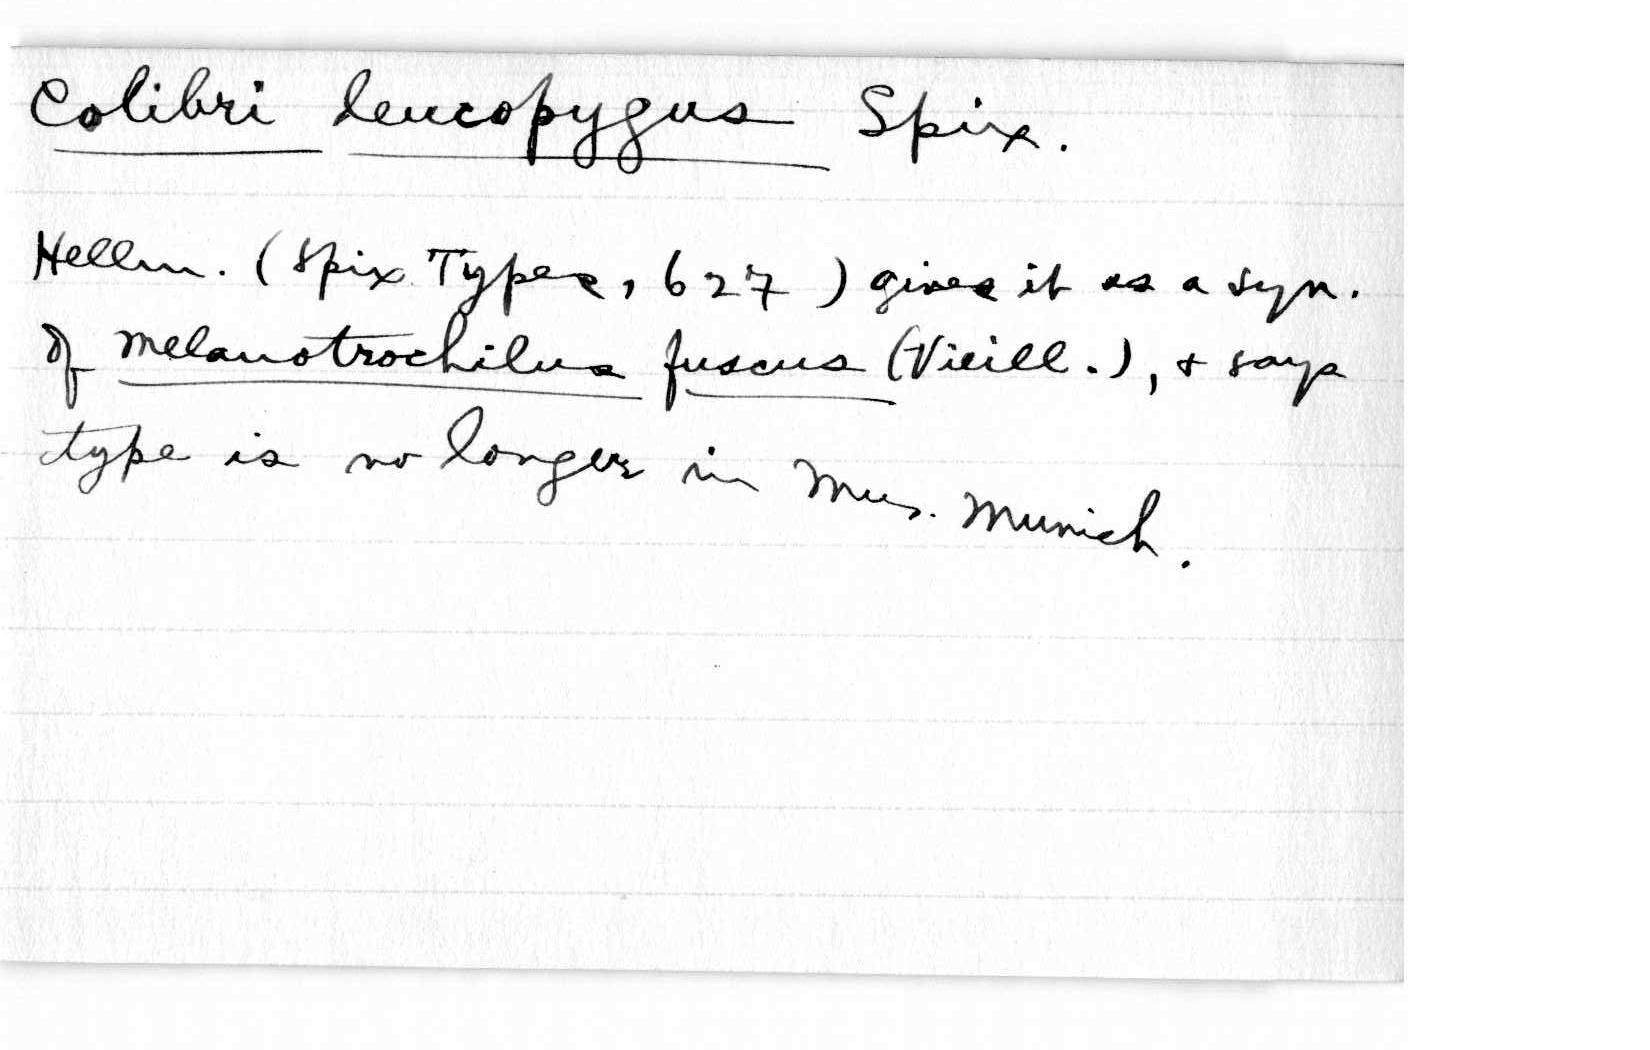 Colibri leucopygus Spix.
Hellm. (Spix Types, 627) gives it as a syn.
of Melanotrochilus fuscus (Vieill.), & says
type is no longer in Mus. Munich.